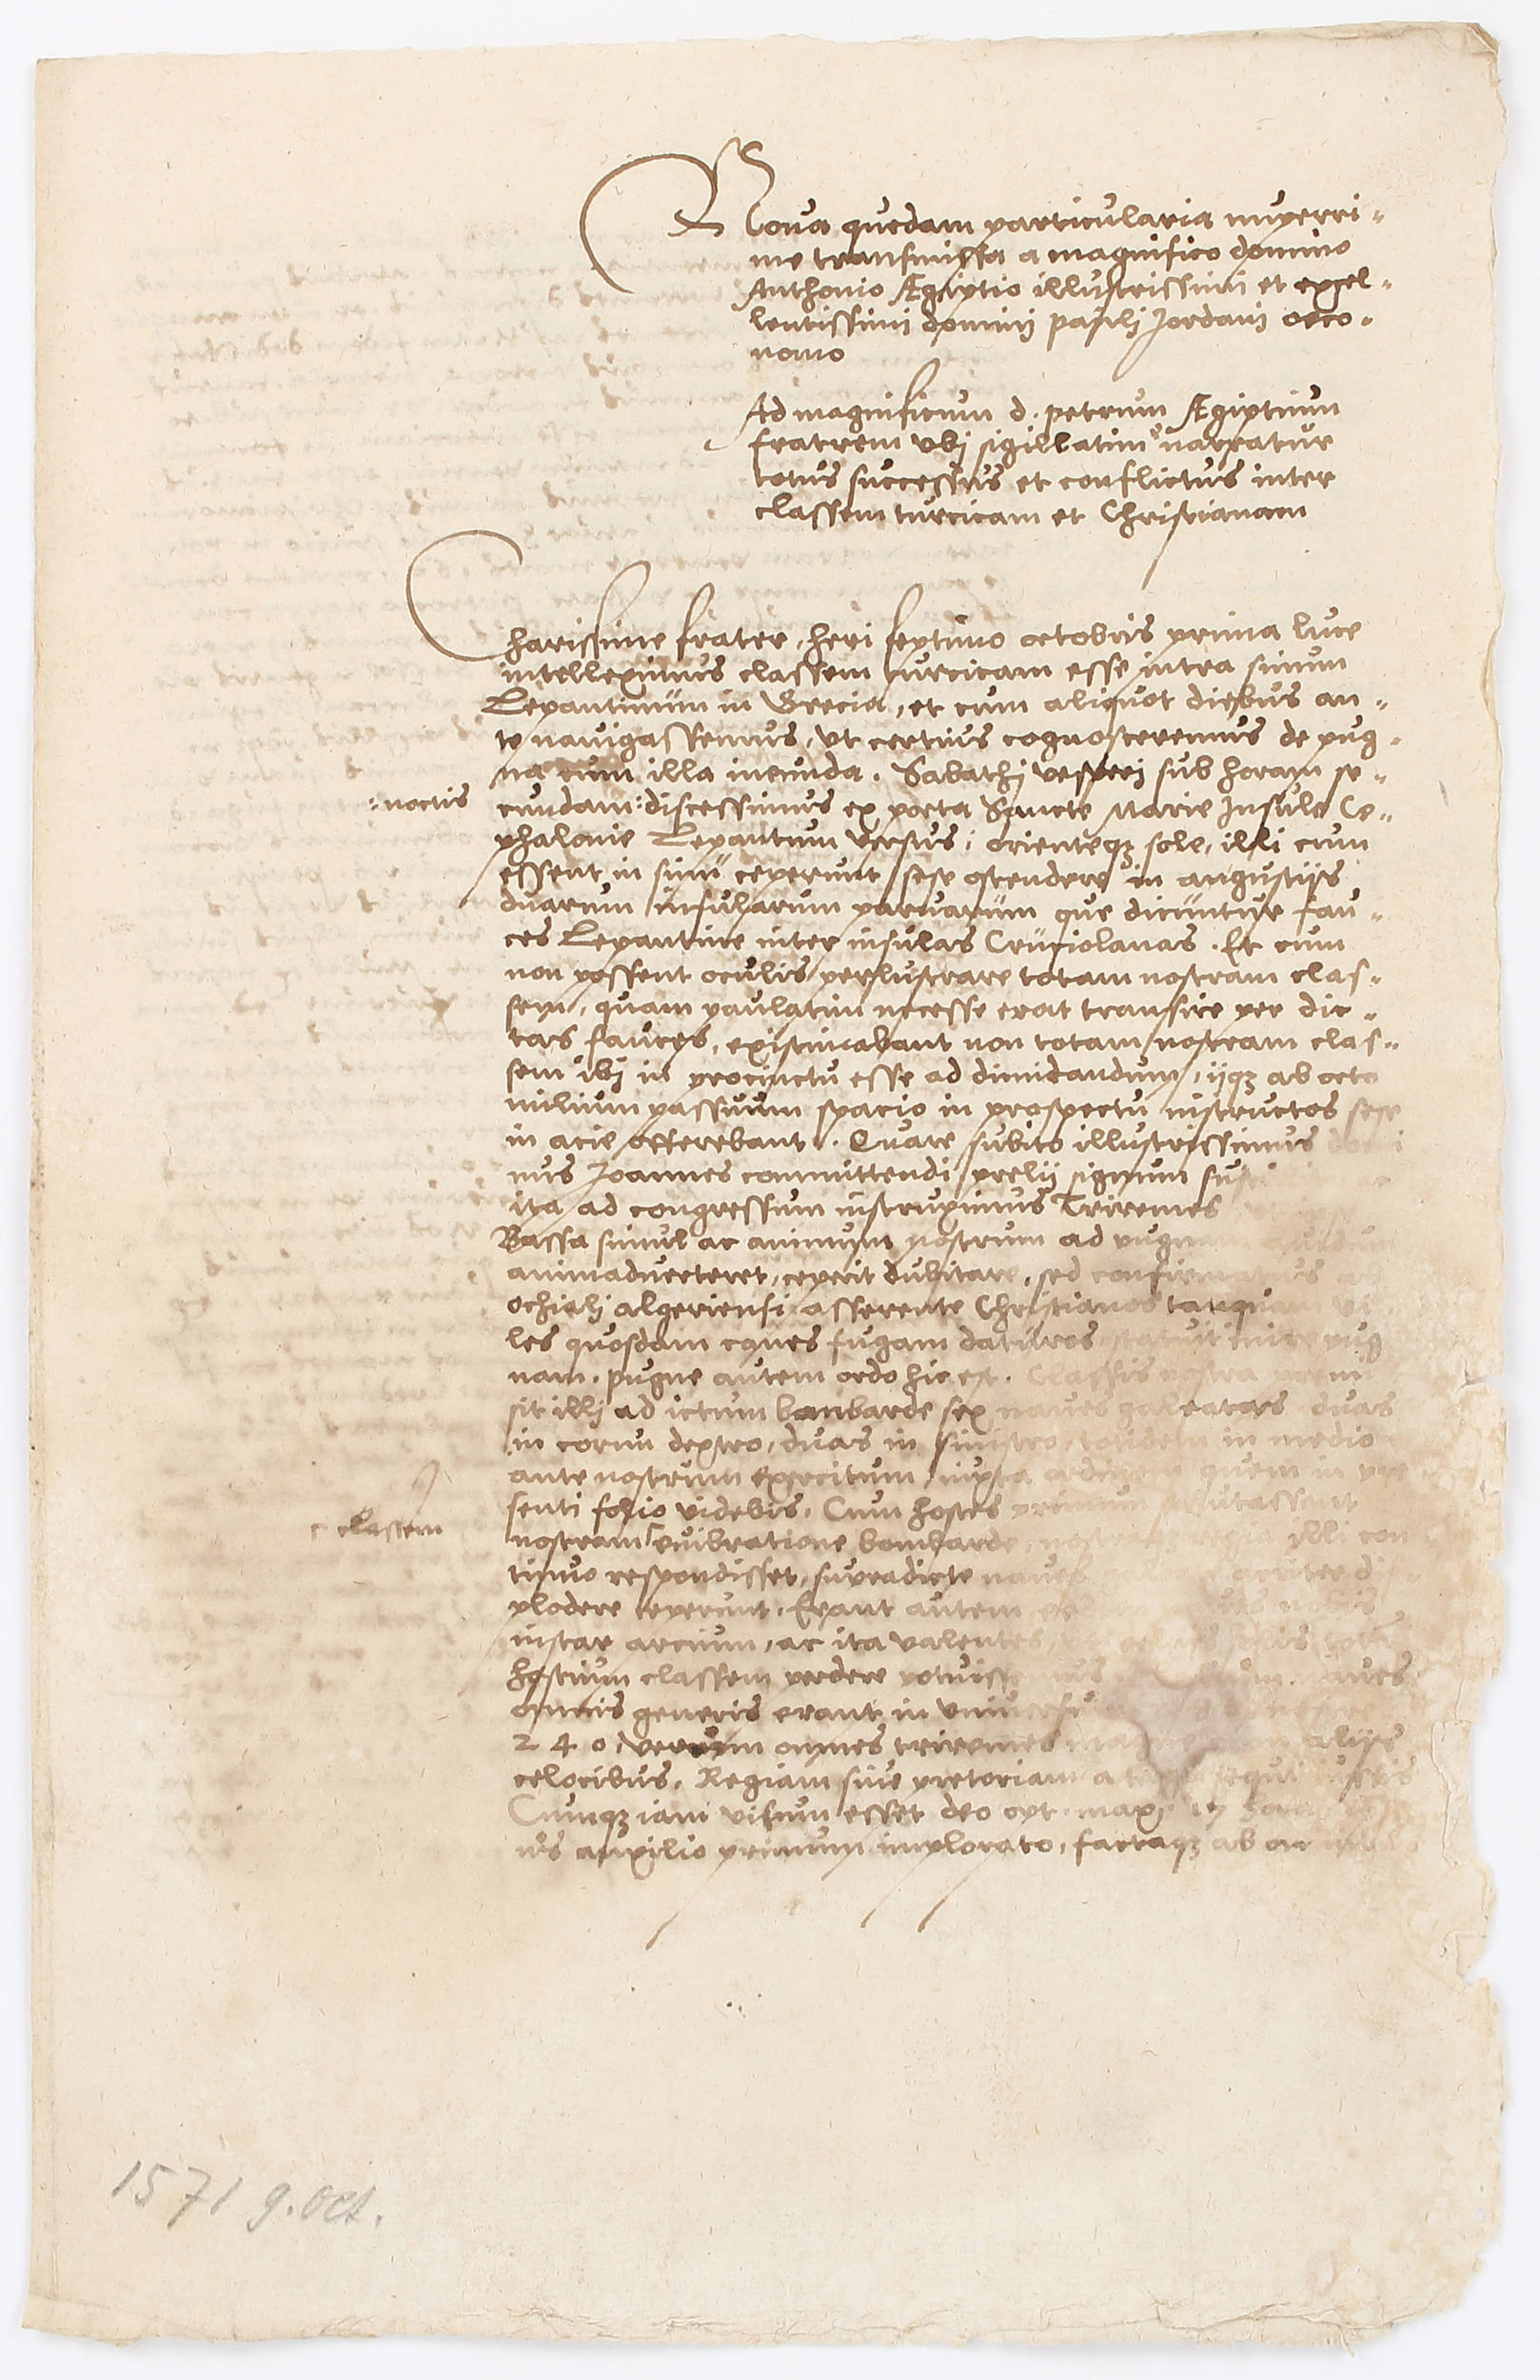 Nova quedam particularia nuperri-
me transmissa a magnifico domino
Anthonio Ægiptio illustrissimi et excel-
lentissimi domini pauli Jordani oeco-
nomo
Ad magnificum d. petrum Ægiptium
fratrem ubi sigillatim narratur
totus successus et conflictus inter
classem turcicam et Christianam
Charissime frater, heri septimo octobris prima luce
intelleximus classem turcicam esse intra sinum
Lepantinum in Grecia, et cum aliquot diebus an-
te navigassemus, ut certius cognosceremus de pug-
na cum illa ineunda. Sabathi vesperi sub horam se-
:noctis
cundam: discessimus ex porta Sancte Marie Insule Ce-
phalonie Lepantum versus, orienteqz sole, illi cum
essent in sinu ceperunt sese ostendere in angustijs
duarum insularum parvarum que dicuntur fau-
ces Lepantine inter insulas Cruciolanas. Et cum
non possent oculis perlustrare totam nostram clas-
sem, quam paulatim necesse erat transire per dic-
tas fauces, existimabant non totam nostram clas-
sem ibi in procinctu esse ad dimicandum, ijqz ab octo
milium passuum spacio in prospectu instructos sese
in acie offerebant. Quare subito illustrissimus
nus Joannes committendi prelij signum
ita ad congressum instruximus Triremes
Bassa simul ac animum nostrum ad
animadverteret, ceperit dubitare, sed
ochiali algeriensi asserente Christianos tanquam vi
les quosdam fugam daturos statuit inire pug
nam. pugne autem ordo hic est. Classis nostra premi
sit illi ad ictum bombarde sex naves galeatas duas
in cornu dextro, duas in sinistro, totidem in medio
ante nostrum exercitum iuxta ordinem quem in pre
senti folio videbis. Cum hostes primum salutassent
classem
nostram vibratione bombarde illi con
tinuo respondisset, supradicte naves
plodere ceperunt. Erant autem nobis
instar arcium, ac ita valentes,
hostium classem perdere
omnis generis erant in
240, verum omnes triremes alijs
celocibus. Regiam sive pretoriam a
Cumqz iam visum esset deo opt. max.
auxilio primum implorato, factaqz ab
1571 9. Oct.